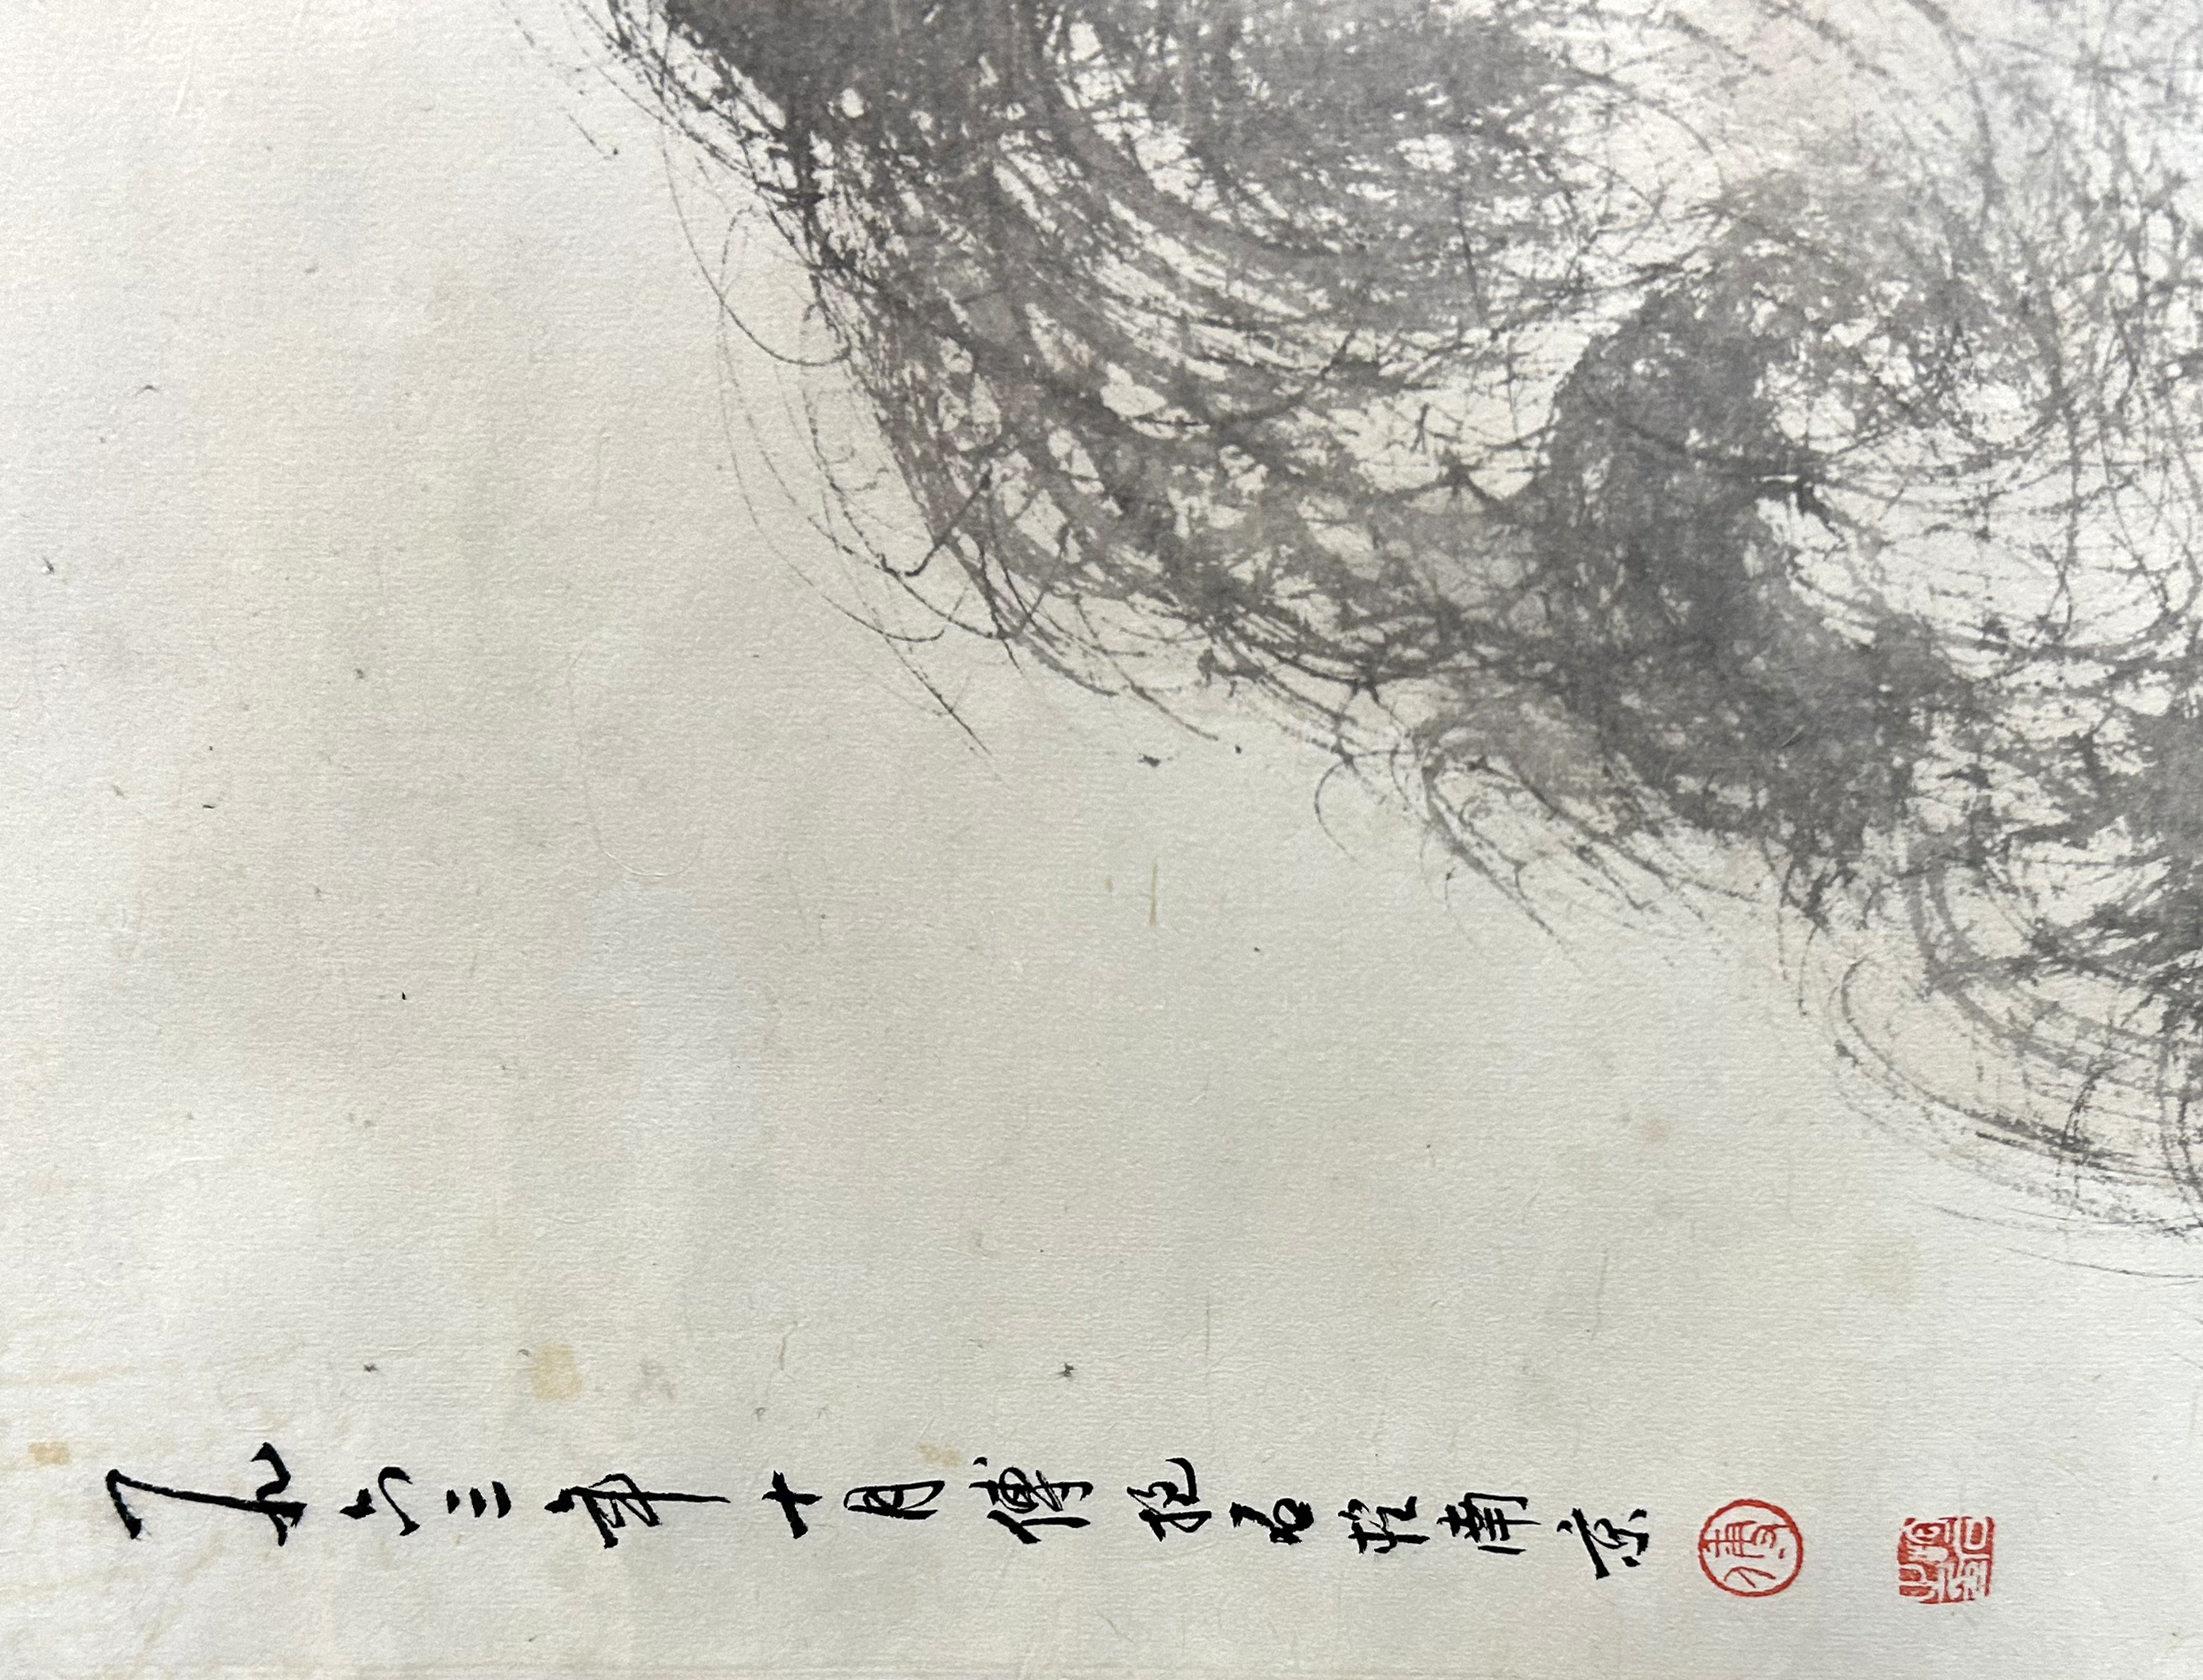 一九六三年十月傅抱石於南京
傅